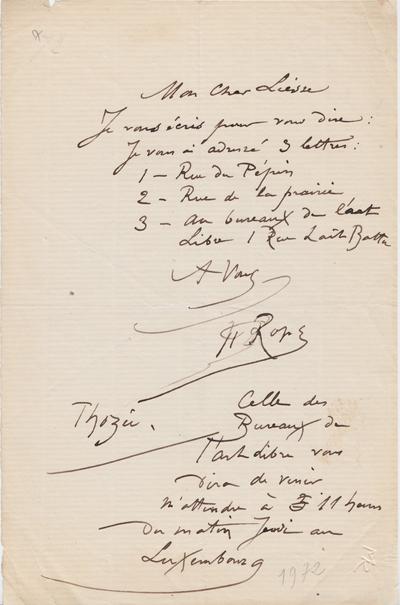 Mon Cher Liesse
Je vous écris pour vous dire :
Je vous ai adressé 3 lettres :
1 – Rue du Pépin
2 – Rue de la prairie
3 – au bureaux de l'art
Libre 1 Rue
A Vous
Rops
Thozée.
Celle des
Bureaux de
l'art libre vous
dira de venir
m'attendre à 11 heures
du matin Jeudi au
Luxembourg
1972